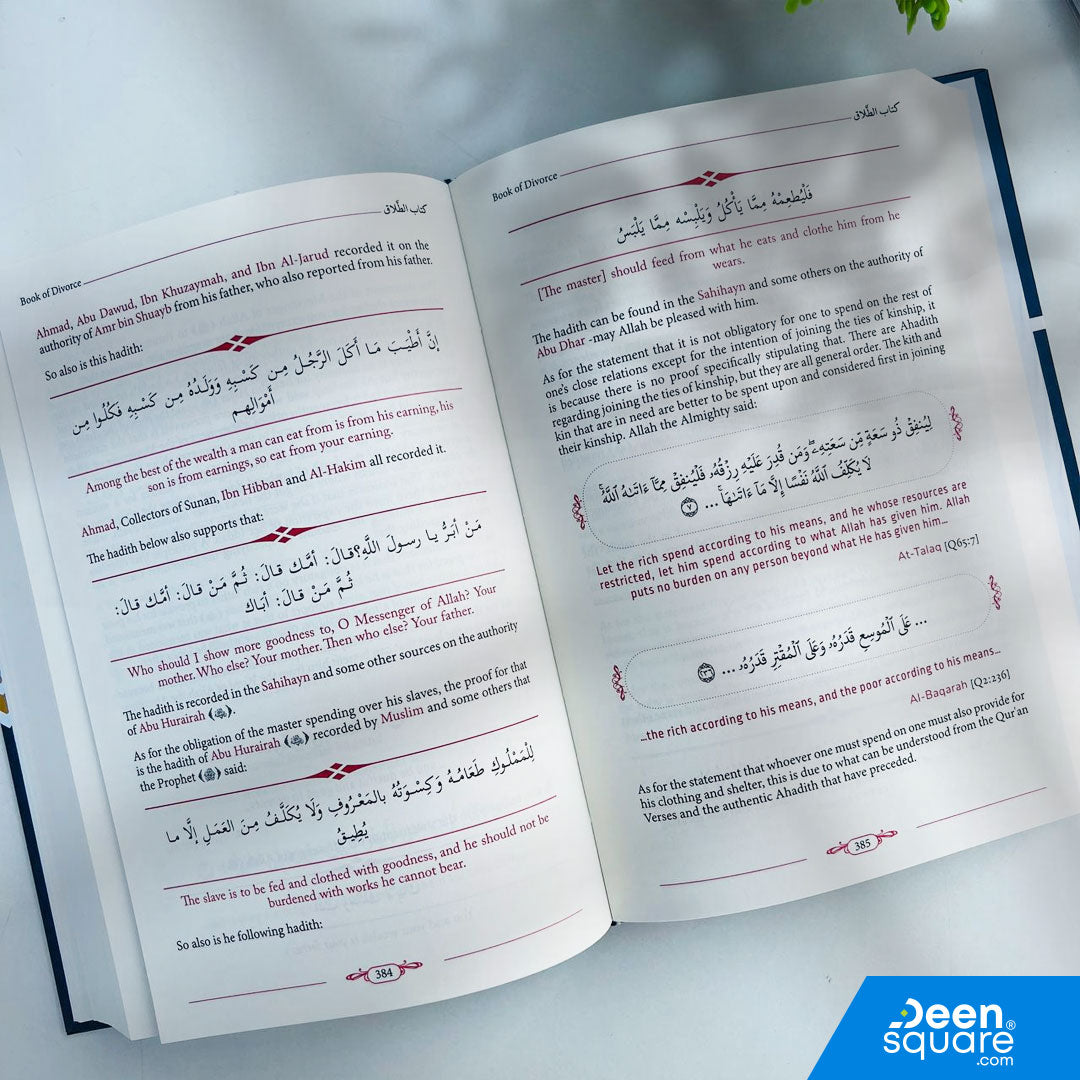 Book of Divorce
كتاب الطَّلاق
Ahmad, Abu Dawud, Ibn Khuzaymah, and Ibn Al-Jarud recorded it on the
authority of Amr bin Shuayb from his father, who also reported from his father.
So also is this hadith:
إِنَّ أَطْيَبَ مَا أَكَلَ الرَّجُلُ مِن كَسْبِهِ وَوَلَدُهُ مِن كَسْبِهِ فَكُلُوا مِن
أَمْوَالِهِم
Among the best of the wealth a man can eat from is from his earning, his
son is from earnings, so eat from your earning.
Ahmad, Collectors of Sunan, Ibn Hibban and Al-Hakim all recorded it.
The hadith below also supports that:
مَنْ أَبَرُّ يا رسولَ اللَّهِ؟قالَ: أمَّك قالَ: ثُمَّ مَنْ قالَ: أمَّك قالَ:
ثُمَّ مَنْ قالَ: أباك
Who should I show more goodness to, O Messenger of Allah? Your
mother. Who else? Your mother. Then who else? Your father.
The hadith is recorded in the Sahihayn and some other sources on the authority
of Abu Hurairah (رضي الله عنه).
As for the obligation of the master spending over his slaves, the proof for that
is the hadith of Abu Hurairah (رضي الله عنه) recorded by Muslim and some others that
the Prophet (ﷺ) said:
لِلْمَمْلُوكِ طَعَامُهُ وَكِسْوَتُهُ بالمَعْرُوفِ وَلَا يُكَلَّفُ مِنَ العَمَلِ إلَّا ما
يُطِيقُ
The slave is to be fed and clothed with goodness, and he should not be
burdened with works he cannot bear.
So also is he following hadith:
384
Book of Divorce
كتاب الطَّلاق
فَلْيُطْعِمْهُ مِمَّا يَأْكُلُ وَيَلْبِسْه مِمَّا يَلْبَسُ
[The master] should feed from what he eats and clothe him from he
wears.
The hadith can be found in the Sahihayn and some others on the authority of
Abu Dhar -may Allah be pleased with him.
As for the statement that it is not obligatory for one to spend on the rest of
one's close relations except for the intention of joining the ties of kinship, it
is because there is no proof specifically stipulating that. There are Ahadith
regarding joining the ties of kinship, but they are all general order. The kith and
kin that are in need are better to be spent upon and considered first in joining
their kinship. Allah the Almighty said:
لِيُنفِقْ ذُو سَعَةٍ مِّن سَعَتِهِۦ ۖ وَمَن قُدِرَ عَلَيْهِ رِزْقُهُۥ فَلْيُنفِقْ مِمَّآ ءَاتَىٰهُ ٱللَّهُ ۚ
لَا يُكَلِّفُ ٱللَّهُ نَفْسًا إِلَّا مَآ ءَاتَىٰهَا ۚ ... ٧
Let the rich spend according to his means, and he whose resources are
restricted, let him spend according to what Allah has given him. Allah
puts no burden on any person beyond what He has given him...
At-Talaq [Q65:7]
... عَلَى ٱلْمُوسِعِ قَدَرُهُۥ وَعَلَى ٱلْمُقْتِرِ قَدَرُهُۥ ... ٢٣٦
...the rich according to his means, and the poor according to his means...
Al-Baqarah [Q2:236]
As for the statement that whoever one must spend on one must also provide for
his clothing and shelter, this is due to what can be understood from the Qur'an
Verses and the authentic Ahadith that have preceded.
385
Deen
square®
.com